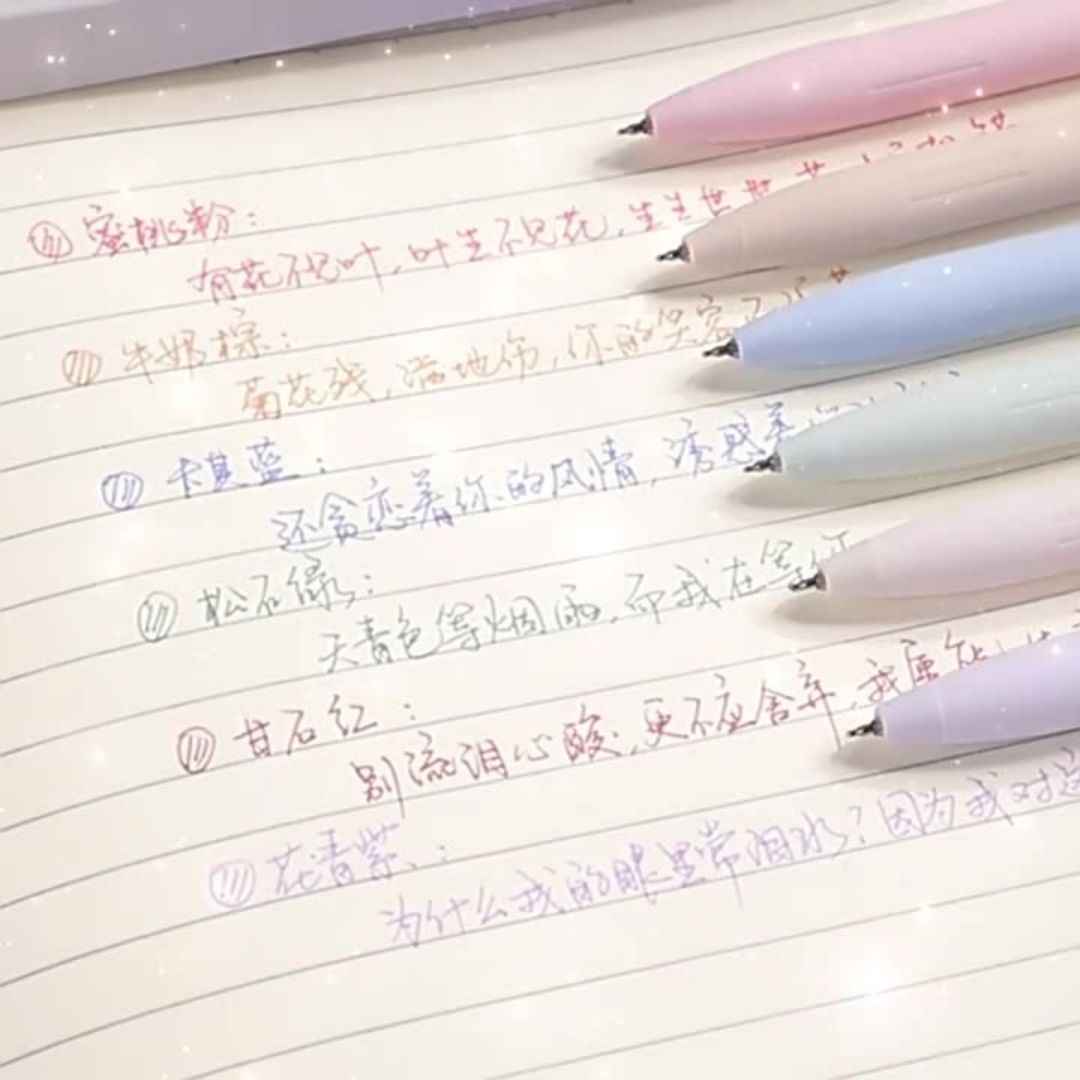 蜜桃粉:
有花不见叶,叶生不见花,生生世世
牛奶棕:
菊花残,满地伤,你的笑容
卡其蓝:
还贪恋着你的风情,诱惑着
松石绿:
天青色等烟雨,而我在等你
甘石红:
别流泪心酸,更不应舍弃,我愿能
花青紫:
为什么我的眼里常泪水?因为我对这